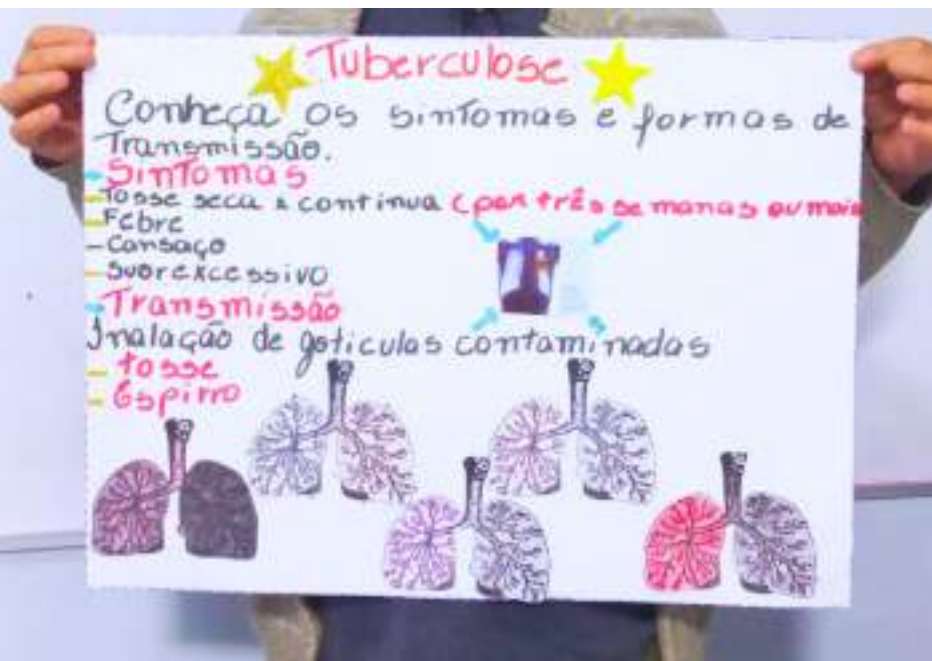 Tuberculose
Conheça os sintomas e formas de
Transmissão.
- Sintomas
- Tosse seca e continua (por três semanas ou mais
- Febre
- Cansaço
- Suor excessivo
- Transmissão
Inalação de goticulas contaminadas
- tosse
- Espirro